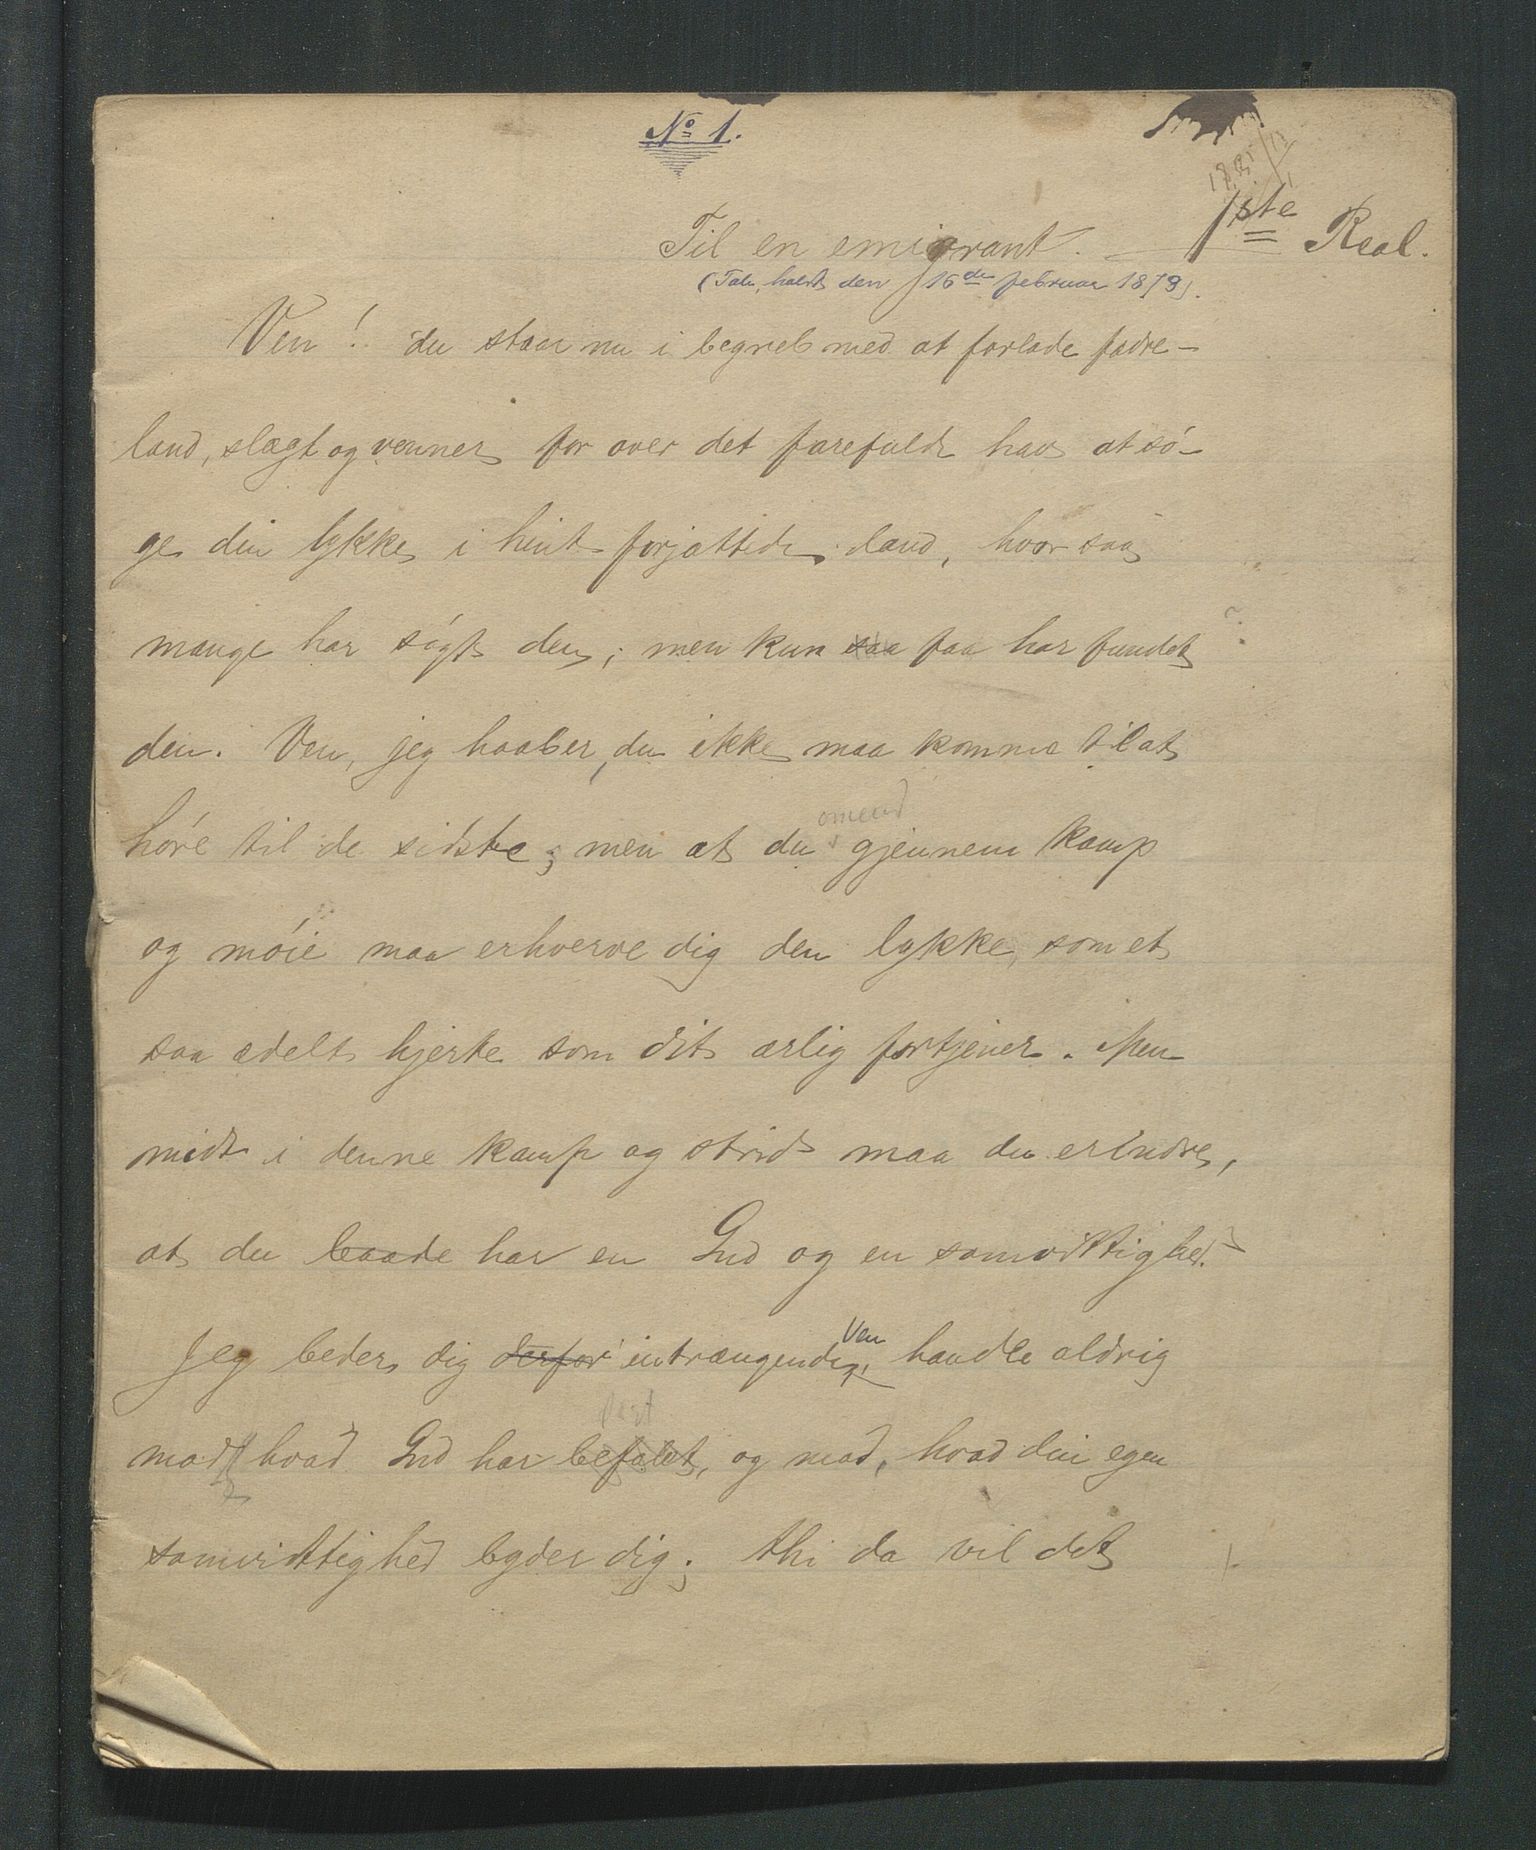 No 1.
Til en emigrant. 1ste Real.
(Tale, holdt den 16de februar 1879).
Ven! du staar nu i begreb med at forlade fædre-
land, slægt og venner for over det farefulde hav at sø-
ge din lykke i hint forjættede land, hvor saa
mange har søgt den; men kun saa faa har fundet
den. Ven, jeg haaber, du ikke maa komme til at
omend
høre til de sidste; men at du gjennem kamp
og møie maa erhverve dig den lykke, som et
saa ædelt hjerte som dit ærlig fortjener. Men
midt i denne kamp og strid maa du erindre,
at du baade har en Gud og en samvittighed.
Ven
Jeg beder dig derfor intrængendig, handle aldrig
mod, hvad Gud har befalet, og mod, hvad din egen
samvittighed byder dig; thi da vil det